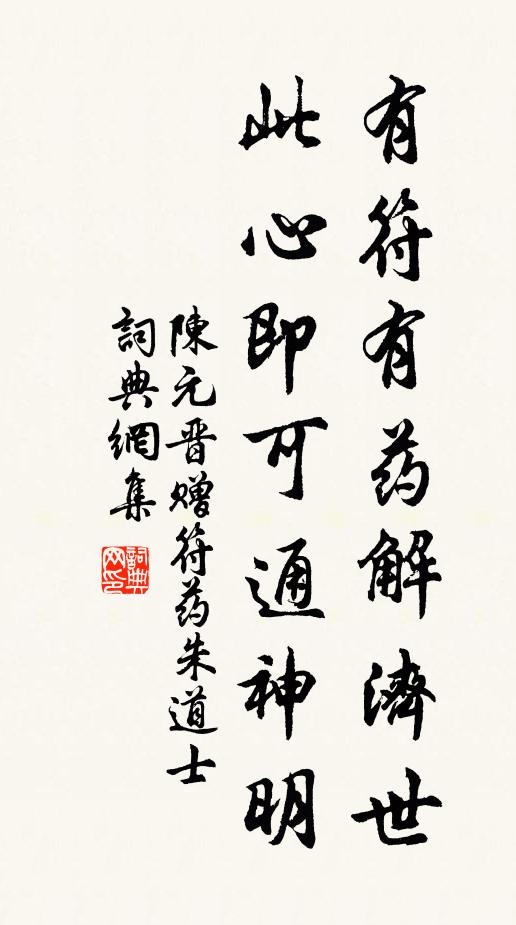 有符有药解濟世
此心即可通神明
陳元晋赠符药朱道士
詞典網集
詞典网印